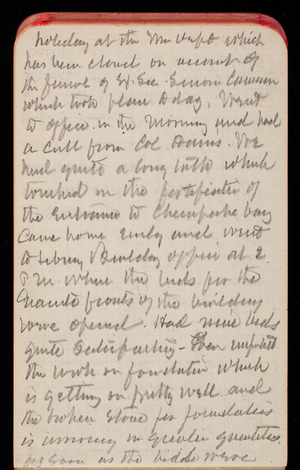 holiday at the War Dept which
has been closed on account of
the funeral of Ex. Sec. Simon Cameron
which took place today. Went
to office in the Morning and had
a call from Col Adams. We
had quite a long talk which
touched on the fortification of
the Entrance to Chesapeake bay
Came home Early and went
to Library Building office at 2
P M when the bids for the
Granite fronts of the building
were opened. Had nine bids
quite Satisfactory - 
the work on foundation which
is getting on pretty well and
the broken Stone for foundation
is arriving in greater quantities.
as soon as the bids were